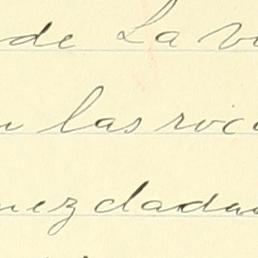 de La v
las roc
mezclada